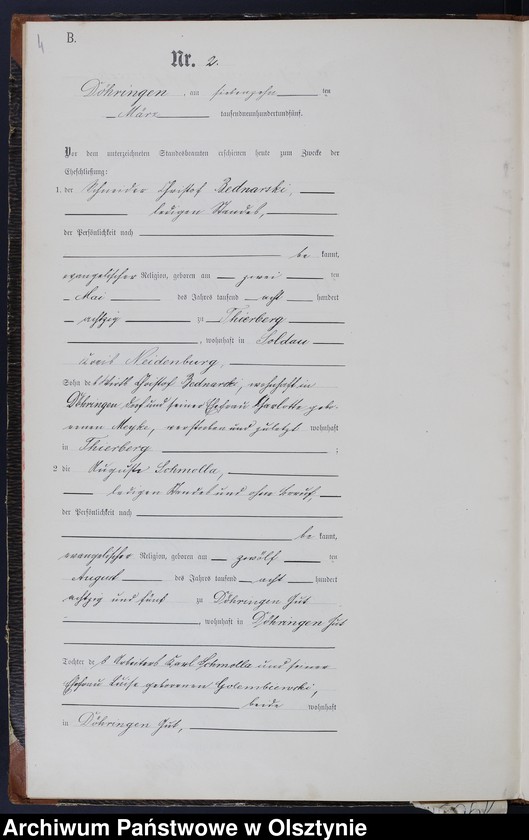 4
B.
Nr. 2.
Döhringen, am siebenzehn ten
März tausendneunhundertundfünf.
Vor dem unterzeichneten Standesbeamten erschienen heute zum Zwecke der
Eheschließung:
1. der Schneider Christof Bednarski,
ledigen Standes,
der Persönlichkeit nach
be kannt,
evangelischer Religion, geboren am zwei ten
Mai des Jahres tausend acht hundert
achtzig zu Thierberg
, wohnhaft in Soldau
Kreis Neidenburg,
Sohn des Christof Bednarski, wohnhaft in
Döhringen Dorf und seiner Ehefrau Charlotte gebo-
renen Moyke, verstorben und zuletzt wohnhaft
in Thierberg ;
2 die Auguste Schmolla,
ledigen Standes und ohne Beruf,
der Persönlichkeit nach
be kannt,
evangelischer Religion, geboren am zwölf ten
August des Jahres tausend acht hundert
achtzig und fünf zu Döhringen Gut
, wohnhaft in Döhringen Gut
Tochter des Arbeiters Karl Schmolla und seiner
Ehefrau Luise geborenen Golembiewski,
beide wohnhaft
in Döhringen Gut,
Archiwum Państwowe w Olsztynie